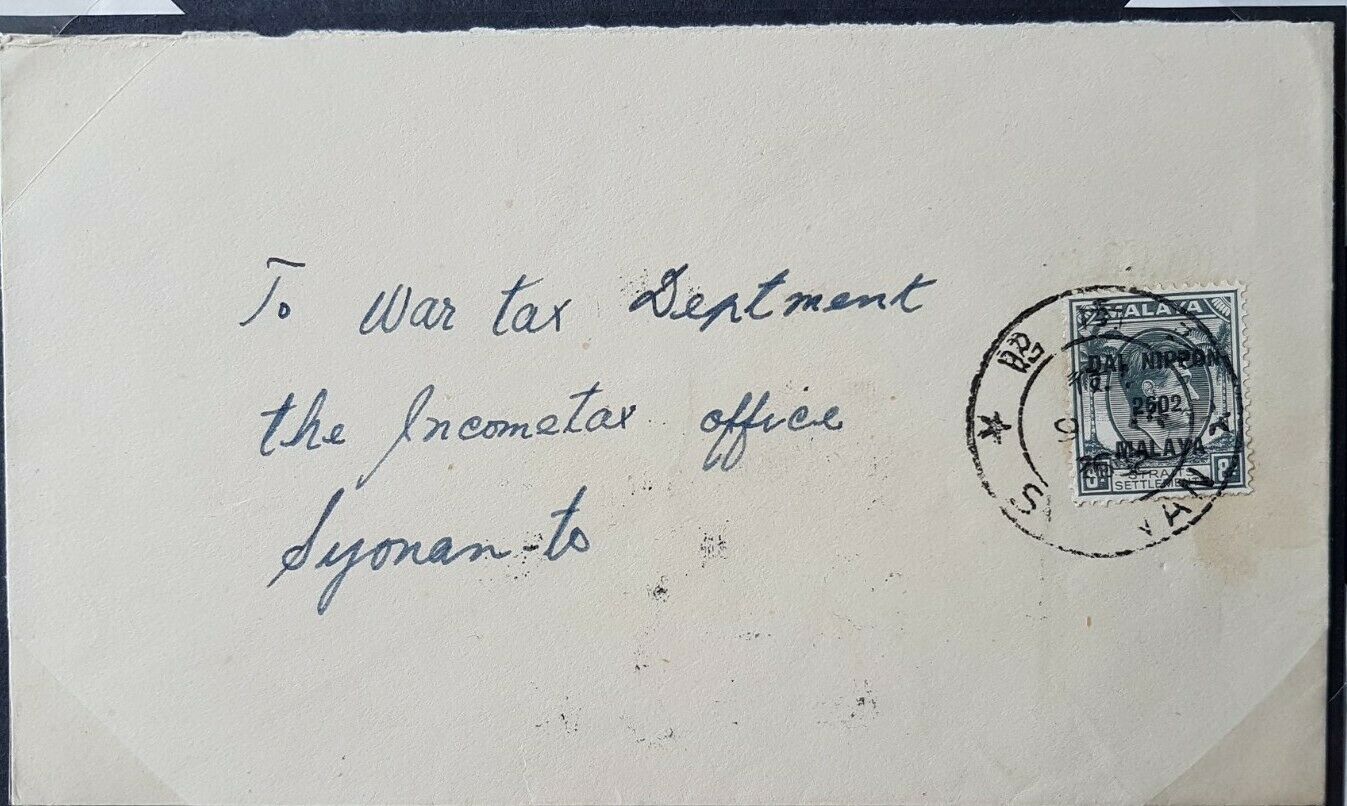 To War tax Deptment
the Incometax office
Syonan-to
MALAYA
DAI NIPPON
2602
MALAYA
STRAITS
SETTLEMENTS
昭